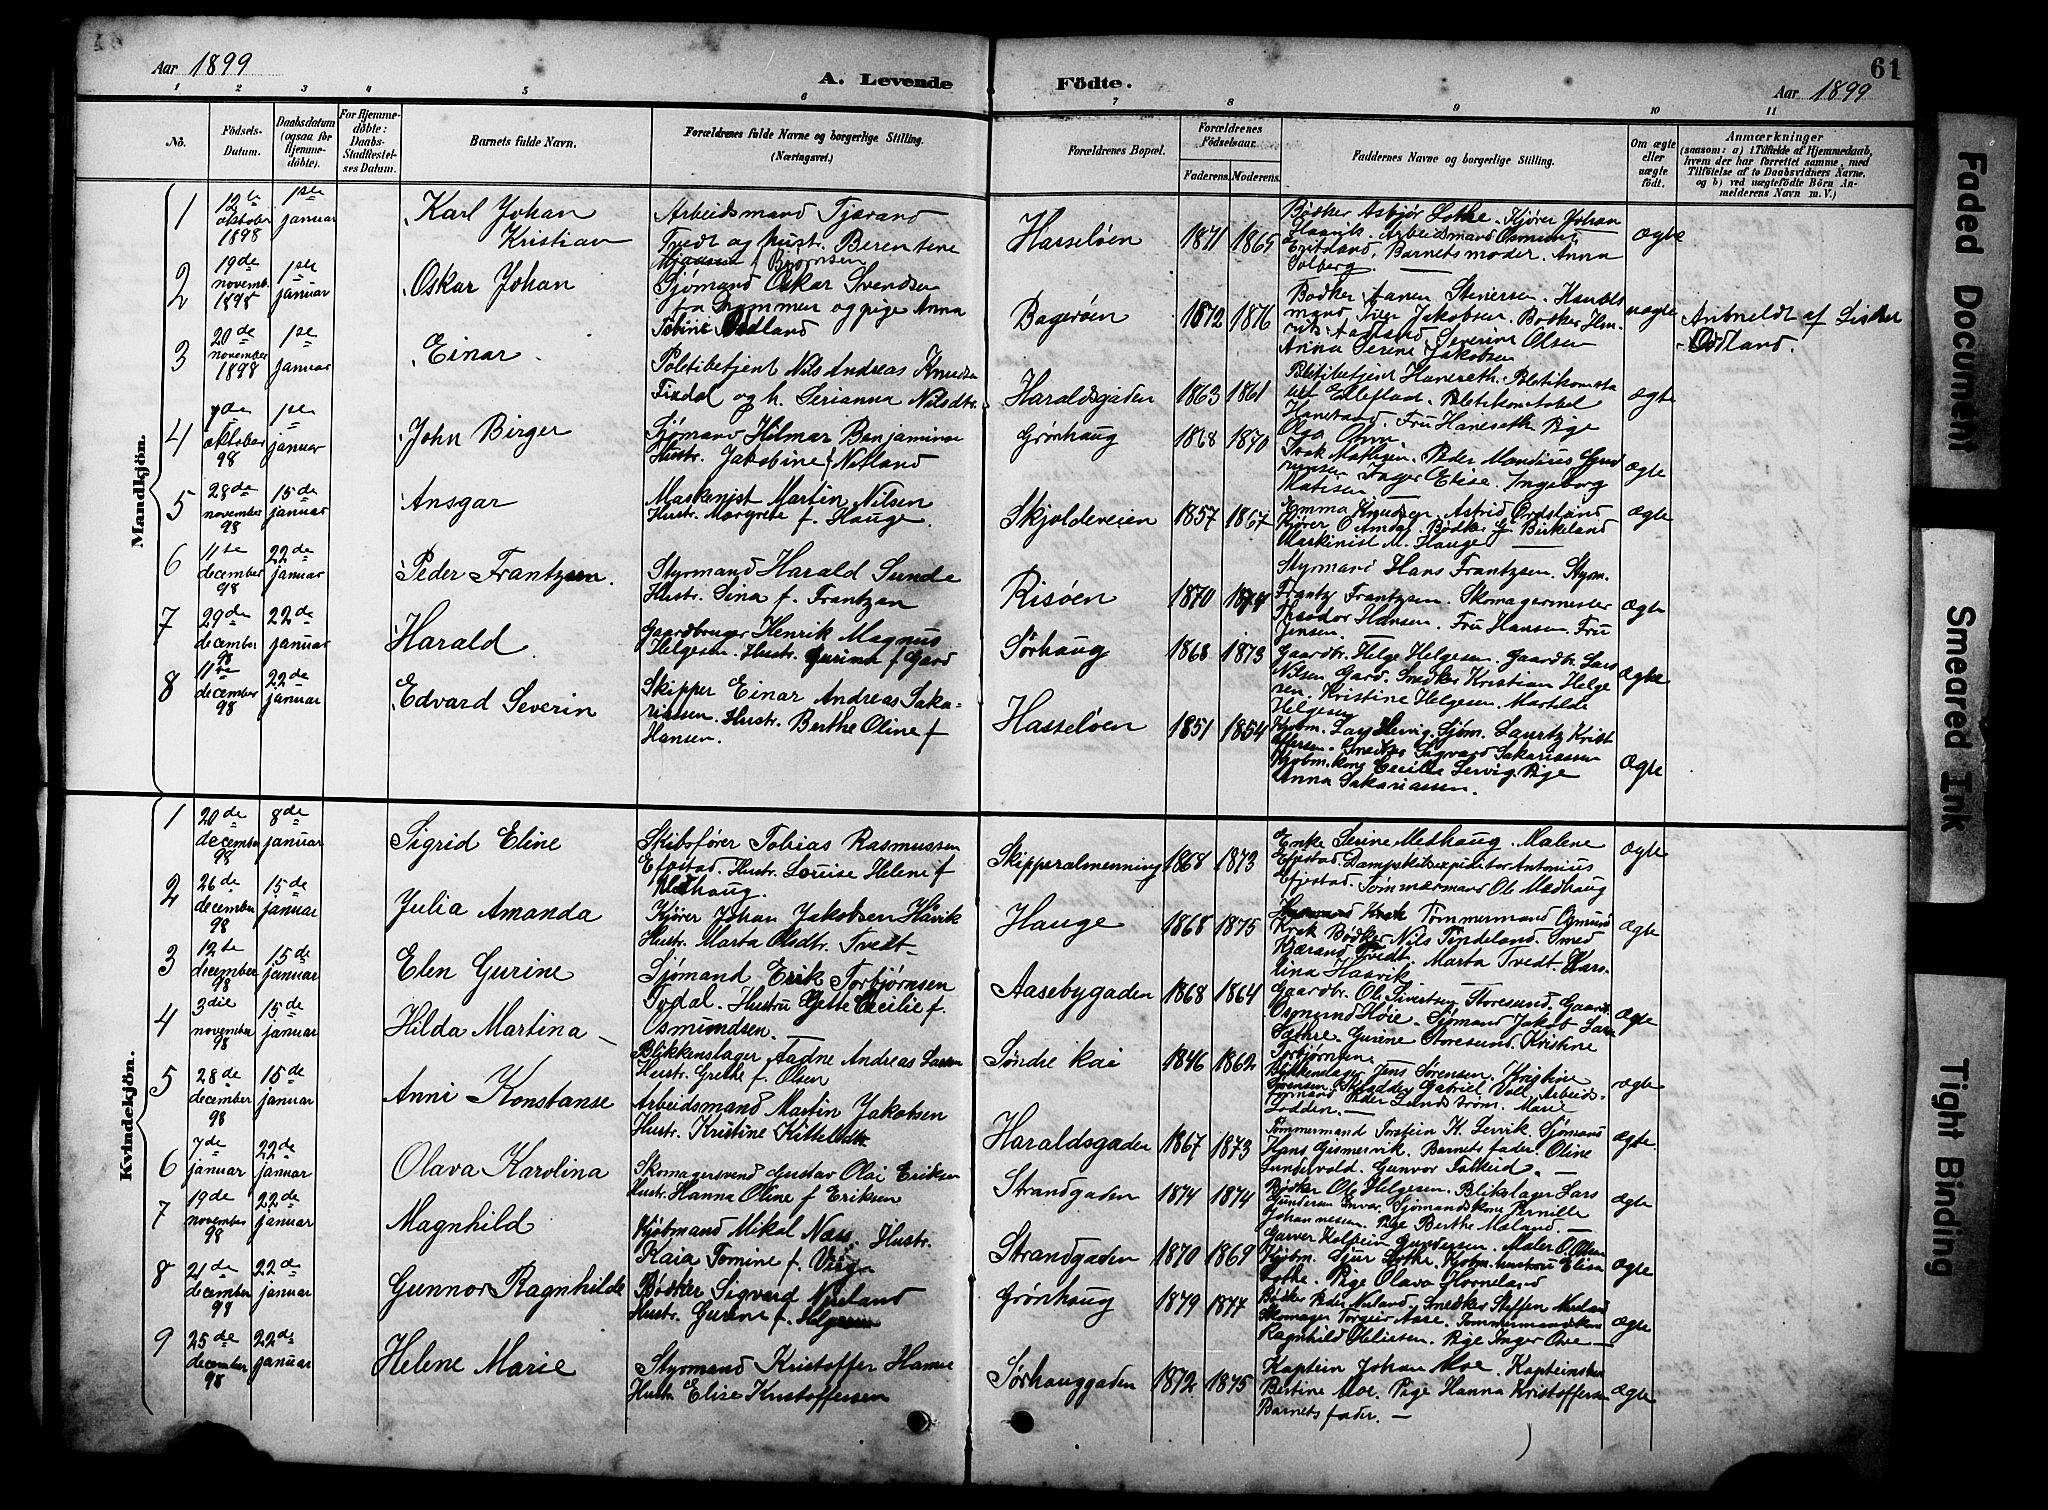 61
Aar 1899
A. Levende
Födte.
Aar 1899
1 2 3 4 5 6 7 8 9 10 11
No.
Födsels-Datum.
Daabsdatum (ogsaa for Hjemme-döbte).
For Hjemme-döbte: Daabs-Stadfæstel-ses Datum.
Barnets fulde Navn.
Forældrenes fulde Navne og borgerlige Stilling.
(Næringsvei.)
Forældrenes Bopæl.
Forældrenes Födselsaar.
Faderens. Moderens.
Faddernes Navne og borgerlige Stilling.
Om ægte eller uægte födt.
Anmærkninger
(saasom: a) i Tilfælde af Hjemmedaab, hvem der har forrettet samme, med Tilföielse af to Daabsvidners Navne, og b) ved uægtefödte Börn An-melderens Navn m. V.)
Mandkjön.
1 12te oktober 1898 1ste januar Karl Johan Kristian
Arbeidsmand Tjærand Tvedt og hustr. Berentine
Hasseløen 1871 1865
Bødker Asbjør Lothe. Kjører Johan Haavik. Arbeidsmand Osmund
Barnets moder. Anna Solberg.
ægte
2 19de novemb. 1898 1ste januar Oskar Johan
Sjømand Oskar Svendsen fra Drammen og pige Anna Tobine Ødland
Bagerøen 1872 1876
Bødker Aanen Stenersen. Jakobsen. Bødker Hen-rik Aadland. Severine Olsen Anna Serine Jakobsen
uægte
Anmeldt af Ødland.
3 20de november 1898 1ste januar Einar
Politibetjent Nils Andreas Knudsen Tixdal og h. Serianna Nilsdtr.
Haraldsgaden 1863 1861
Politibetjent Haneseth. Fru Haneseth. Pige Olga
ægte
4 7de oktober 98 1ste januar John Birger
Sjømand Hilmar Benjaminsen Hustr. Jakobine Nilland
Grønhaug 1868 1870
Isak Mathisen. Peder Mandius Inger Elise. Ingeborg Matisen
ægte
5 28de november 98 15de januar Ansgar
Maskinist Martin Nilsen Hustr. Margrete f. Hauge.
Skjoldeveien 1857 1867
Emma Knudsen. Astrid Kjører O Amdal. Bødker G. Birkeland Maskinist M. Hauge
ægte
6 11te december 98 22de januar Peder Frantzsen.
Styrmand Harald Sunde Hustr. Sina f. Frantzen
Risøen 1870 1874
Styrmand Hans Frantzsen. Styrm. Frantz Frantzsen. Skomagermester Theodor Hansen. Fru Hansen. Fru Jensen.
ægte
7 29de december 98 22de januar Harald
Gaardbruger Henrik Magnus Helgesen. Hustr. Gurina f Gard
Sørhaug 1868 1873
Gaardbr. Helge Helgesen. Gaardbr. Lars Nilsen Gard. Smedker Kristian Helge sen. Kristine Helgesen. Martilde Helgesen
ægte
8 11te december 98 22de januar Edvard Severin
Skipper Einar Andreas Saka-riassen. Hustr. Berthe Oline f Hansen.
Hasseløen 1851 1854
Kjøbm. Lars Lervig. Sjøm. Lauritz Krist offersen. Sigvard Sakariassen Kjøbm.kone Cecilia Lervig. Pige Anna Sakariassen.
ægte
Kvindekjön.
1 20de december 98 8de januar Sigrid Eline
Skibsfører Tobias Rasmussen Efjestad. Hustr. Louise Helene f Medhaug.
Skipperalmenning 1868 1873
Enke Serine Medhaug. Malene Efjestad. Dampskibsexpeditør Antonius Efjestad. Tømmermand Ole Medhaug
ægte
2 26de december 98 15de januar Julia Amanda
Kjører Johan Jakobsen Håvik Hustr. Marta Olsdtr. Tvedt
Hauge 1868 1875
Tømmermand Osmund Krak Bødker Nils Tindeland. Smed Kjærand Tvedt. Marta Tvedt. Kars-lina Haavik
ægte
3 12te december 98 15de januar Elen Gurine
Sjømand Erik Torbjørnsen Tydal. Hustru Gitte Cecilie f. Osmundsen.
Aasebygaden 1868 1864
Gaardbr. Ole Sivertsen Storesund. Gaardbr. Osmund Høie. Sjømand Jakob Lars Sæthre. Gurine Storesund. Kristine Torbjørnsen
ægte
4 3die november 98 15de januar Hilda Martina
Blikkenslager Aadne Andreas Larsen Hustr. Grethe f. Olsen
Søndre kai 1846 1862
Blikkenslager Jens Sørensen. Kristine Sørensen. Gabriel Vold. Arbeids-mand Peder Lundstrøm. Marie Lodden.
ægte
5 28de december 98 15de januar Anni Konstanse
Arbeidsmand Martin Jakobsen Hustr. Kristine Kittelsdtr.
Haraldsgaden 1867 1873
Tømmermand Torstein K. Lervik. Sjømand Hans Gismervik. Barnets fader. Oline Sundervold. Gunvor Falkeid.
ægte
6 7de januar 22de januar Olava Karolina
Skomagersvend Gustav Olai Eriksen Hustr. Hanna Oline f Eriksen
Strandgaden 1874 1874
Bødker Ole Helgesen. Blikslager Lars Gundersen. Sjømandskone Pernille Johannessen. Pige Berthe Meland.
ægte
7 19de november 98 22de januar Magnhild
Kjøbmand Mikal Næss. Hustr. Kaia Tomine f. Viig
Strandgaden 1870 1869
Garver Holstein Gundersen. Maler O. Olsen Kjøbm. Sjur Lothe. Kjøbm. hustru Elisa Lothe. Pige Olava Horneland
ægte
8 21de december 98 22de januar Gunnor Ragnhilde
Bødker Sigvard Nuland Hustr. Gurine f. Helgesen
Grønhaug 1879 1877
Bødker Peder Nuland. Smedker Steffen Nuland Skomager Torgeir Aase. Tømmermandskone Ragnhild Pige Inger Ove
ægte
9 25de december 98 22de januar Helene Marie
Styrmand Kristoffer Hansen Hustr. Elise Kristoffersen
Sørhauggaden 1872 1875
Kaptein Johan Moe. Kapteinskone Bertine Moe. Pige Hanna Kristoffersen Barnets fader.
ægte
Faded Document
Smeared Ink
Tight Binding